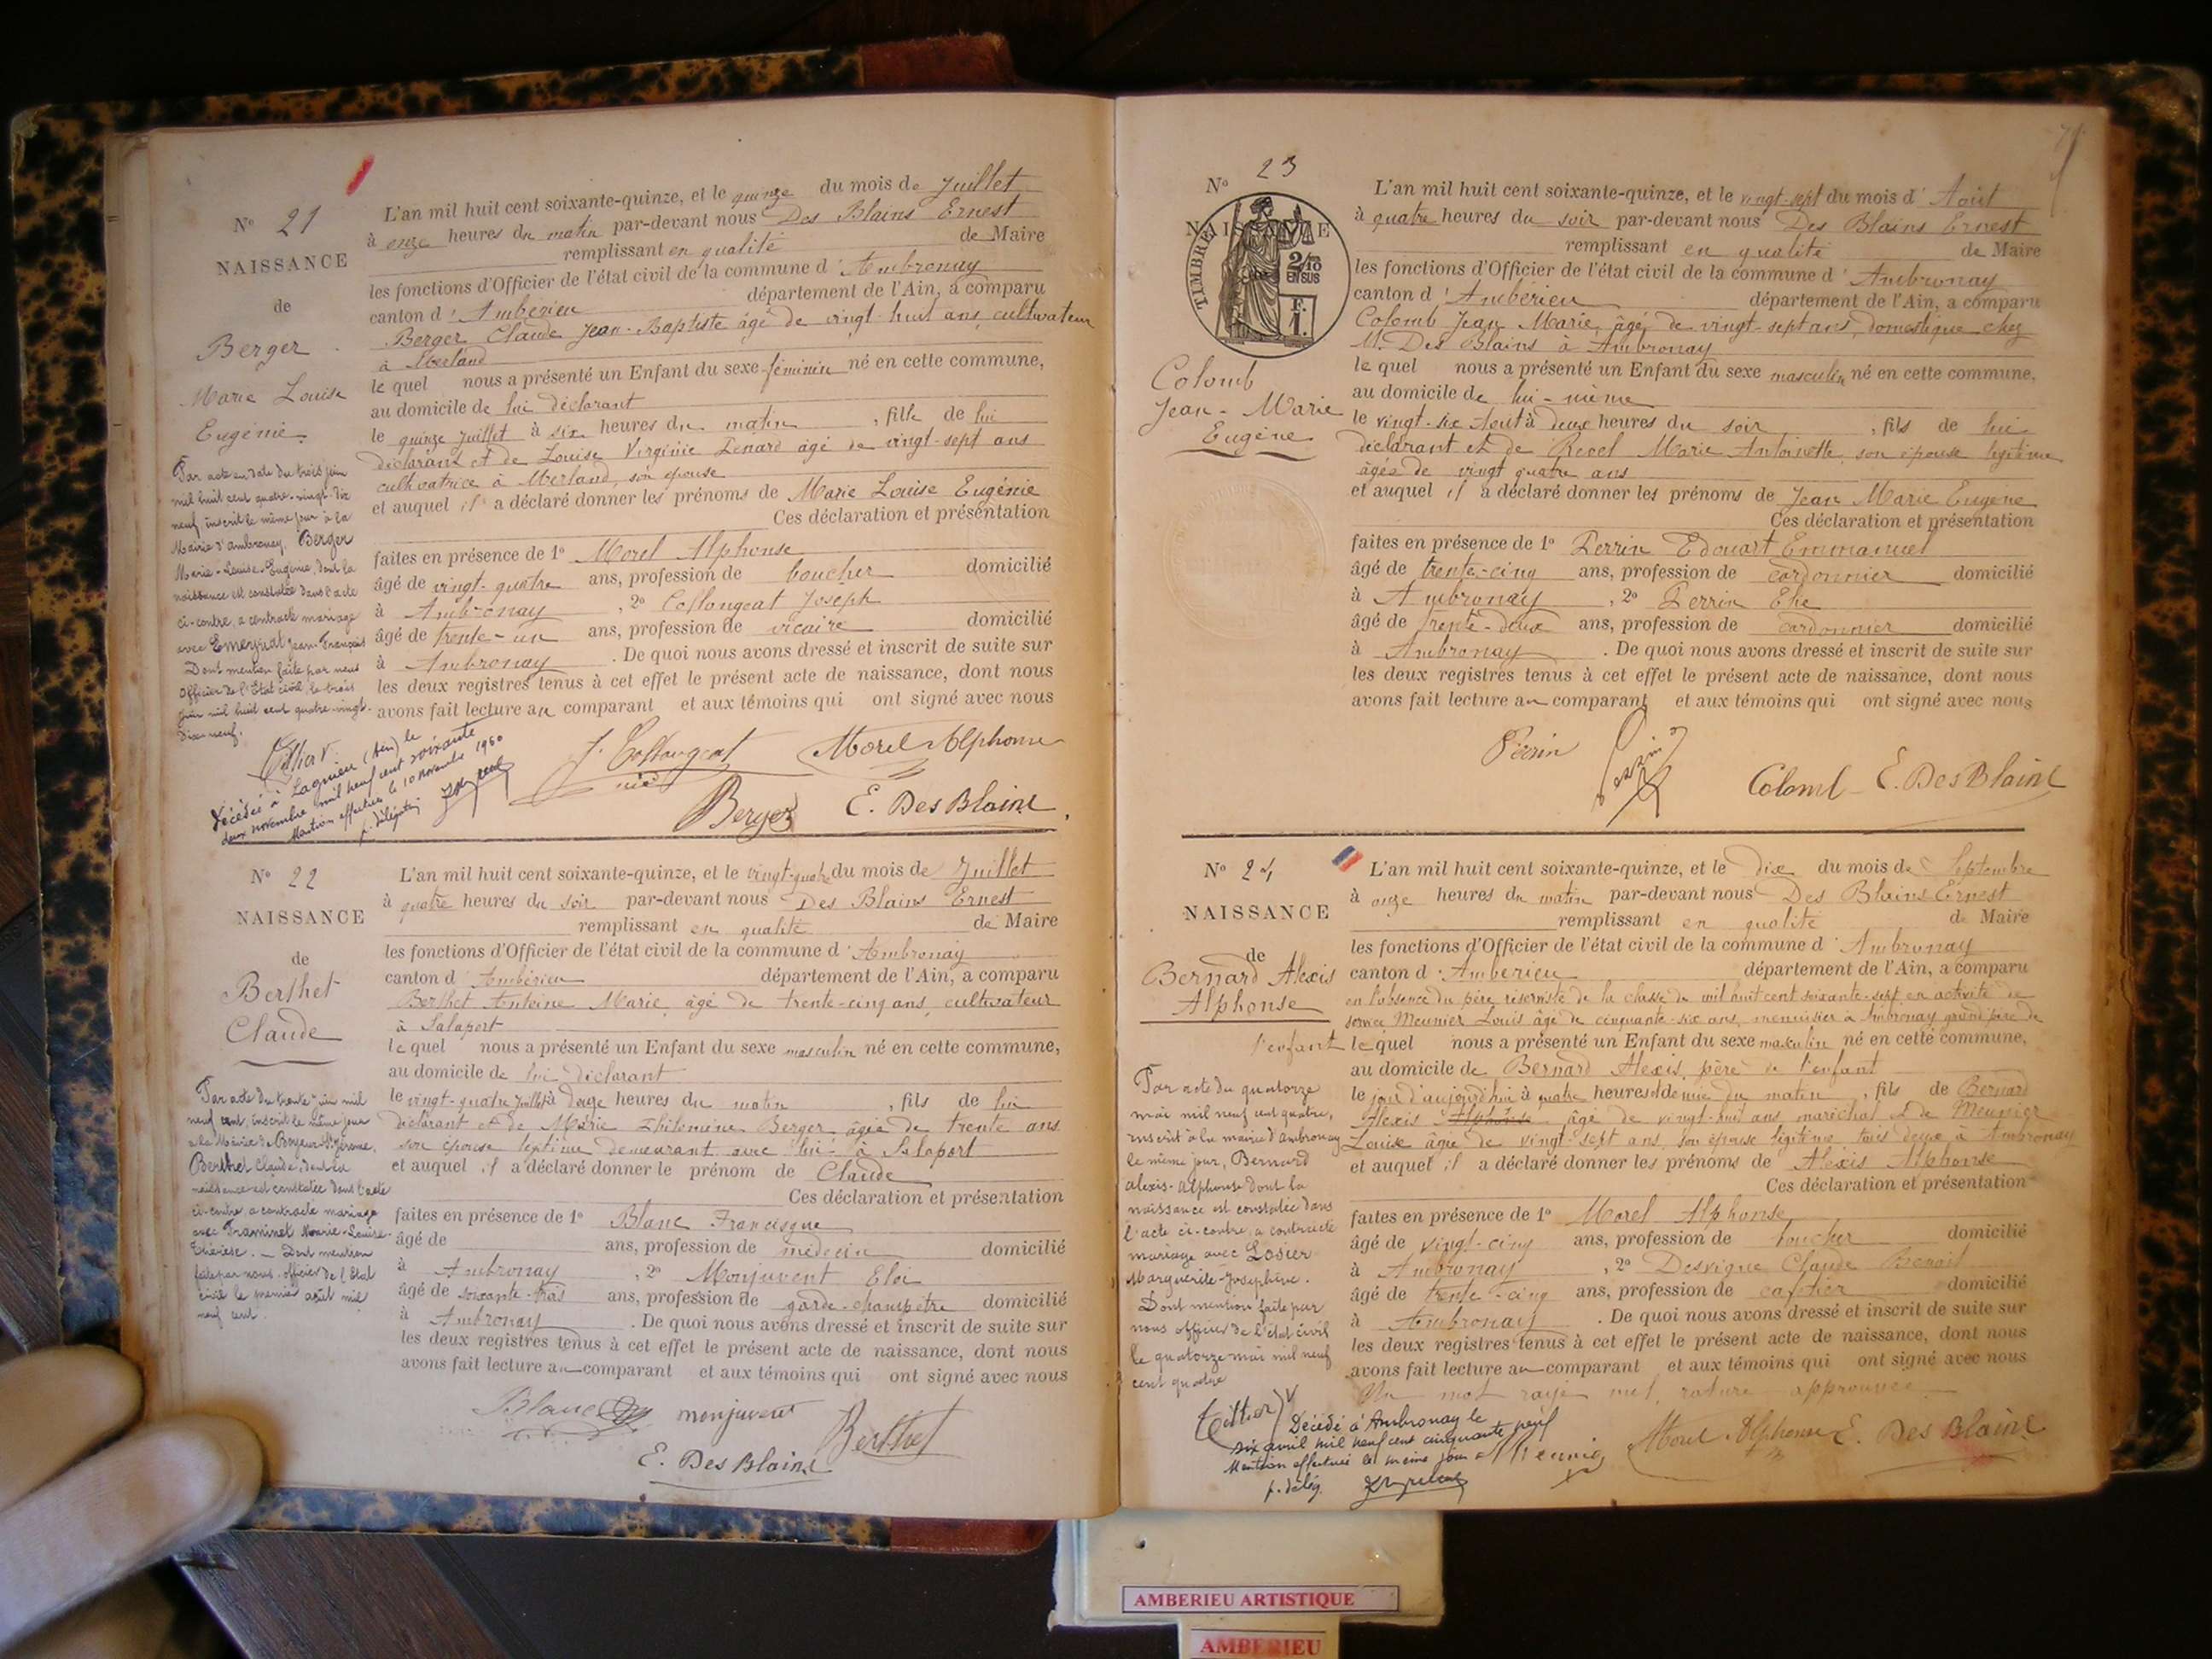 N° 21
NAISSANCE
de
Berger
Marie Louise
Eugénie.
Par acte en date du trois juin
mil huit cent quatre-vingt-dix
neuf, inscrit le même jour à la
Mairie d'Ambronay, Berger
Marie-Louise-Eugénie, dont la
naissance est constatée dans l'acte
ci-contre, a contracté mariage
avec Emerjuat Jean-François
Dont mention faite par nous
officier de l'Etat civil, le trois
juin mil huit cent quatre-vingt-
dix-neuf.
Décédée à Lagnieu (Ain) le
deux novembre mil neuf cent soixante
Mention effectuée le 10 novembre 1960
p. délégation
L'an mil huit cent soixante-quinze, et le quinze du mois de Juillet
à onze heures du matin par-devant nous Des Blains Ernest
remplissant en qualité de Maire
les fonctions d'Officier de l'état civil de la commune d'Ambronay
canton d'Ambérieu département de l'Ain, a comparu
Berger Claude Jean-Baptiste âgé de vingt huit ans, cultivateur
à Merland
le quel nous a présenté un Enfant du sexe féminin né en cette commune,
au domicile de lui déclarant
le quinze Juillet à six heures du matin, fille de lui
déclarant et de Louise Virginie Renard âgé de vingt-sept ans
cultivatrice à Merland, son épouse
et auquel il a déclaré donner les prénoms de Marie Louise Eugénie
Ces déclaration et présentation
faites en présence de 1° Morel Alphonse
âgé de vingt-quatre ans, profession de boucher domicilié
à Ambronay, 2° Collongeat Joseph
âgé de trente-un ans, profession de vicaire domicilié
à Ambronay. De quoi nous avons dressé et inscrit de suite sur
les deux registres tenus à cet effet le présent acte de naissance, dont nous
avons fait lecture au comparant et aux témoins qui ont signé avec nous
J. Collongeat Morel Alphonse
vic
Berger E. Des Blains
N° 22
NAISSANCE
de
Berthet
Claude
Par acte du trente juin mil
neuf cent, inscrit le même jour
à la Mairie de Boyeux-St Jérome,
Berthet Claude, dont la
naissance est constatée dans l'acte
ci-contre a contracté mariage
avec Framinet Marie-Louise-
Thérèse. — Dont mention
faite par nous, officier de l'Etat
civil le premier août mil
neuf cent.
L'an mil huit cent soixante-quinze, et le vingt-quatre du mois de Juillet
à quatre heures du soir par-devant nous Des Blains Ernest
remplissant en qualité de Maire
les fonctions d'Officier de l'état civil de la commune d'Ambronay
canton d'Ambérieu département de l'Ain, a comparu
Berthet Antoine Marie, âgé de trente-cinq ans, cultivateur
à Salaport
le quel nous a présenté un Enfant du sexe masculin né en cette commune,
au domicile de lui déclarant
le vingt-quatre Juillet à douze heures du matin, fils de lui
déclarant et de Marie Philomène Berger âgée de trente ans
son épouse légitime demeurant avec lui à Salaport
et auquel il a déclaré donner le prénom de Claude
Ces déclaration et présentation
faites en présence de 1° Blanc Francisque
âgé de ans, profession de médecin domicilié
à Ambronay, 2° Monjuvent Eloi
âgé de soixante-trois ans, profession de garde-champêtre domicilié
à Ambronay. De quoi nous avons dressé et inscrit de suite sur
les deux registres tenus à cet effet le présent acte de naissance, dont nous
avons fait lecture au comparant et aux témoins qui ont signé avec nous
Blanc monjuvent Berthet
E. Des Blains
N° 23
NAISSANCE
TIMBRE
2/10
EN SUS
F.
1.
Colomb
Jean-Marie
Eugène
L'an mil huit cent soixante-quinze, et le vingt-sept du mois d'Août
à quatre heures du soir par-devant nous Des Blains Ernest
remplissant en qualité de Maire
les fonctions d'Officier de l'état civil de la commune d'Ambronay
canton d'Ambérieu département de l'Ain, a comparu
Colomb Jean Marie, âgé de vingt-sept ans, domestique chez
M. Des Blains à Ambronay
le quel nous a présenté un Enfant du sexe masculin né en cette commune,
au domicile de lui-même
le vingt-six Août à deux heures du soir, fils de lui
déclarant et de Revel Marie Antoinette, son épouse légitime
âgée de vingt quatre ans
et auquel il a déclaré donner les prénoms de Jean Marie Eugène
Ces déclaration et présentation
faites en présence de 1° Perrin Edouart Emmanuel
âgé de trente-cinq ans, profession de cordonnier domicilié
à Ambronay, 2° Perrin Elie
âgé de trente-deux ans, profession de cordonnier domicilié
à Ambronay. De quoi nous avons dressé et inscrit de suite sur
les deux registres tenus à cet effet le présent acte de naissance, dont nous
avons fait lecture au comparant et aux témoins qui ont signé avec nous
Perrin Perrin
Colomb E. Des Blains
N° 24
NAISSANCE
de
Bernard Alexis
Alphonse
Par acte du quatorze
mai mil neuf cent quatre,
inscrit à la mairie d'Ambronay
le même jour, Bernard
Alexis-Alphonse dont la
naissance est constatée dans
l'acte ci-contre, a contracté
mariage avec Losier
Marguerite-Josephine.
Dont mention faite par
nous officier de l'état civil
le quatorze mai mil neuf
cent quatre
Décédé à Ambronay le
six avril mil neuf cent cinquante neuf
Mention effectuée le même jour
p. délég.
L'an mil huit cent soixante-quinze, et le dix du mois de Septembre
à onze heures du matin par-devant nous Des Blains Ernest
remplissant en qualité de Maire
les fonctions d'Officier de l'état civil de la commune d'Ambronay
canton d'Ambérieu département de l'Ain, a comparu
en l'absence du père réserviste de la classe de mil huit cent soixante-sept en activité de
service Meunier Louis âgé de cinquante-six ans, menuisier à Ambronay grand père de
l'enfant le quel nous a présenté un Enfant du sexe masculin né en cette commune,
au domicile de Bernard Alexis, père de l'enfant
le jour d'aujourd'hui à quatre heures et demie du matin, fils de Bernard
Alexis Alphonse âgé de vingt-huit ans maréchal et de Meunier
Louise âgée de vingt-sept ans, son épouse légitime tous deux à Ambronay
et auquel il a déclaré donner les prénoms de Alexis Alphonse
Ces déclaration et présentation
faites en présence de 1° Morel Alphonse
âgé de vingt-cinq ans, profession de boucher domicilié
à Ambronay, 2° Desvigne Claude Benoit
âgé de trente-cinq ans, profession de cafetier domicilié
à Ambronay. De quoi nous avons dressé et inscrit de suite sur
les deux registres tenus à cet effet le présent acte de naissance, dont nous
avons fait lecture au comparant et aux témoins qui ont signé avec nous
Un mot rayé nul, rature approuvée
Meunier Morel Alphonse E. Des Blains
AMBERIEU ARTISTIQUE
AMBERIEU